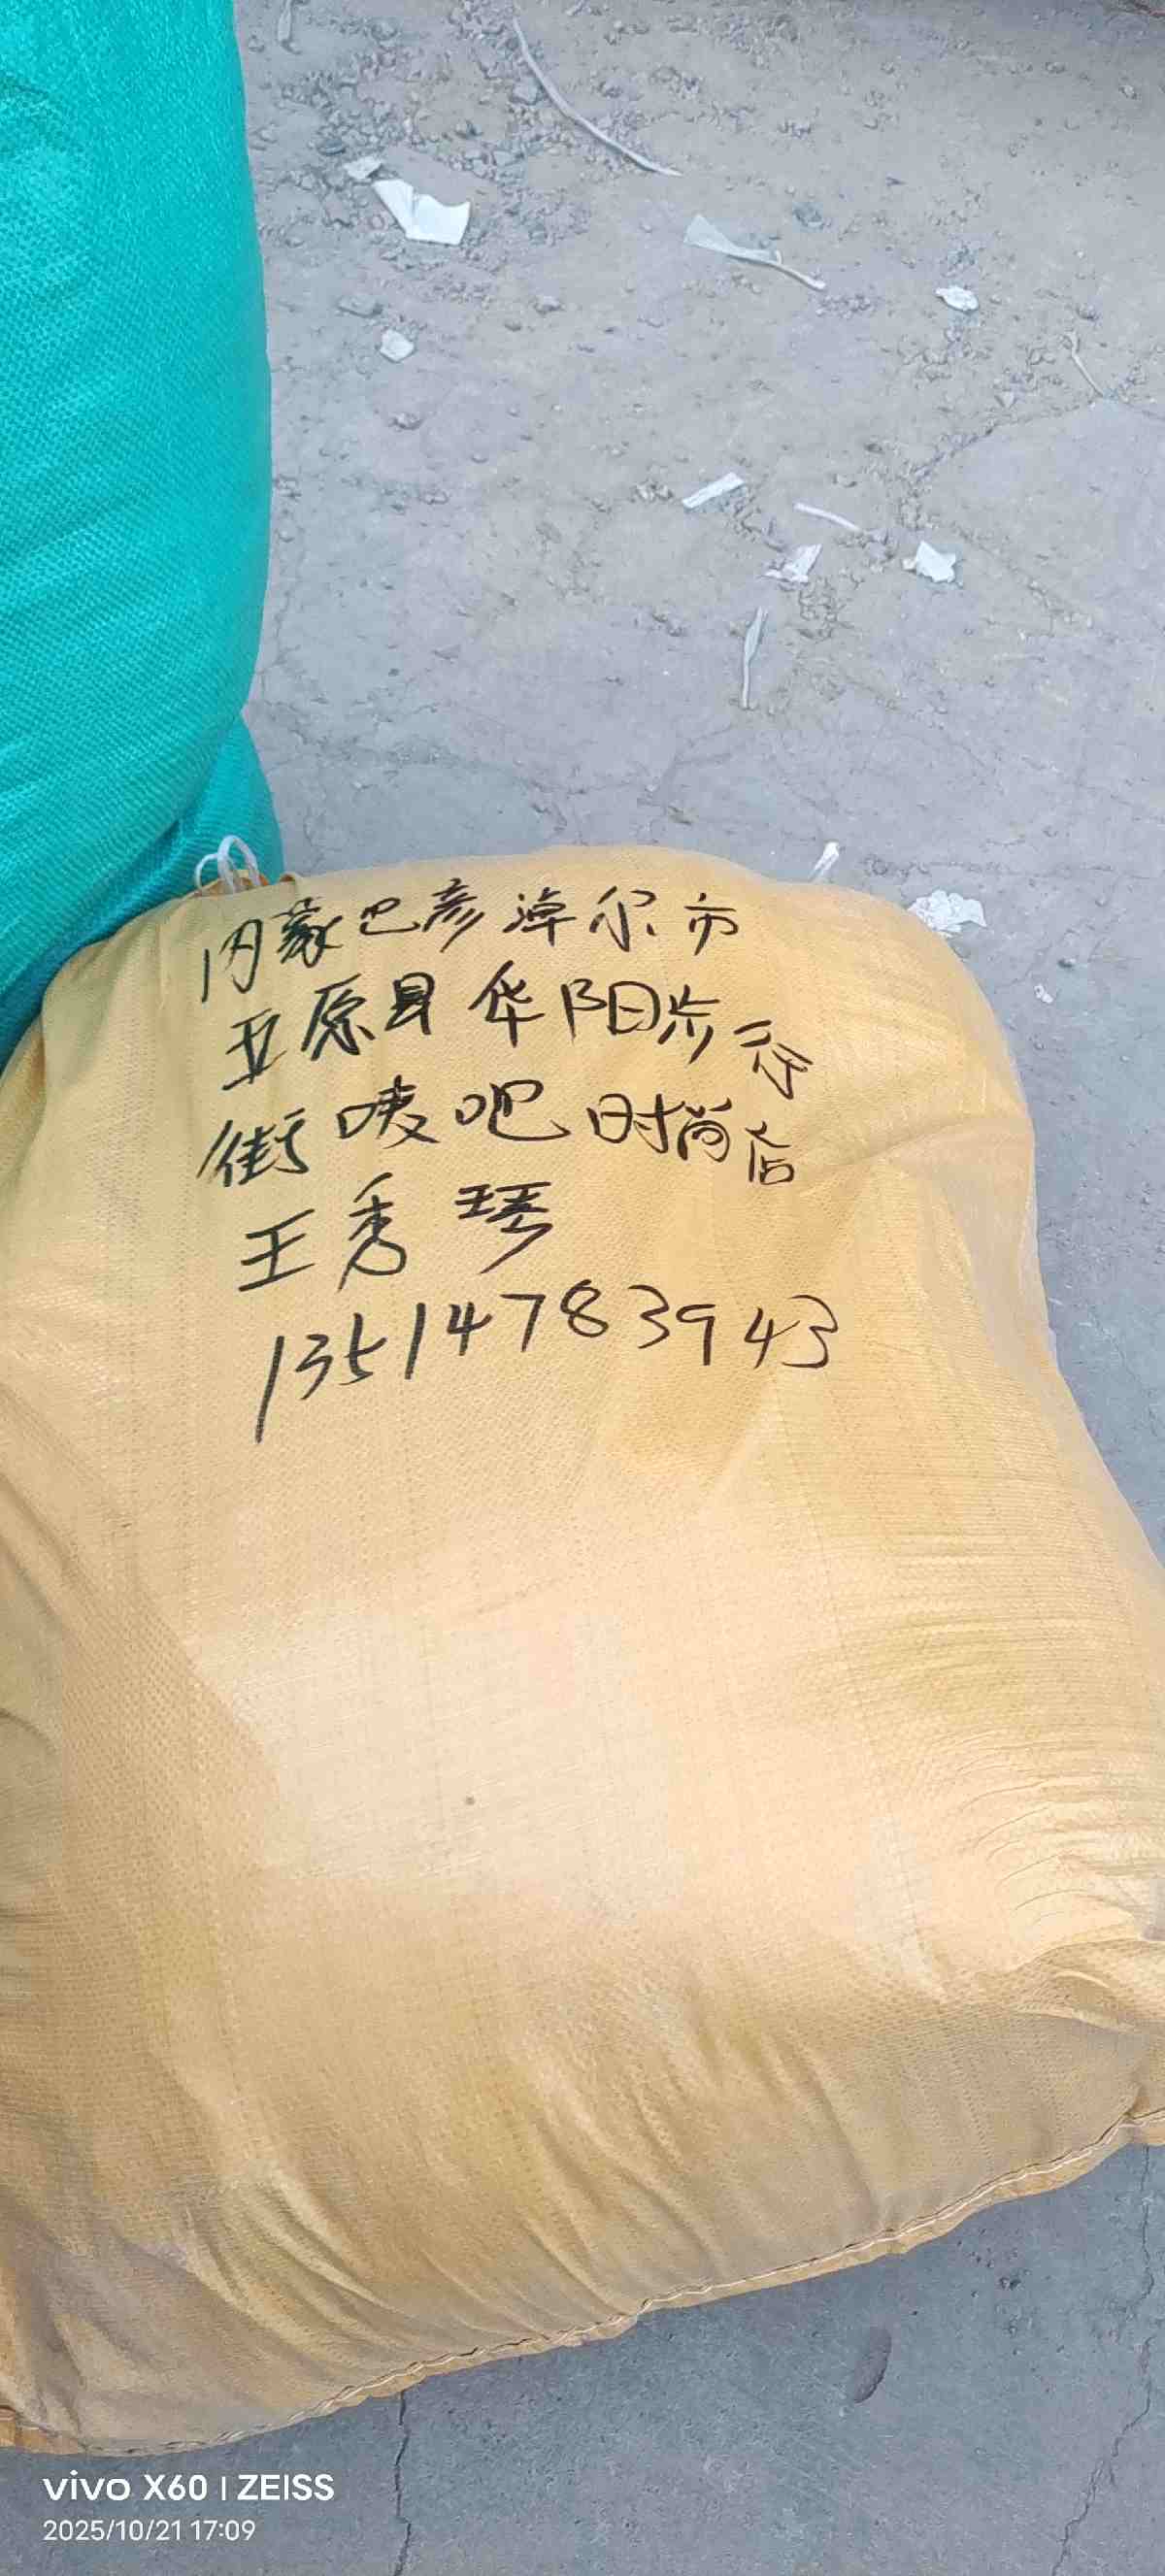 内蒙巴彦淖尔市
五原县华阳步行
街唛吧时尚店
王秀琴
13514783943
vivo X60 | ZEISS
2025/10/21 17:09